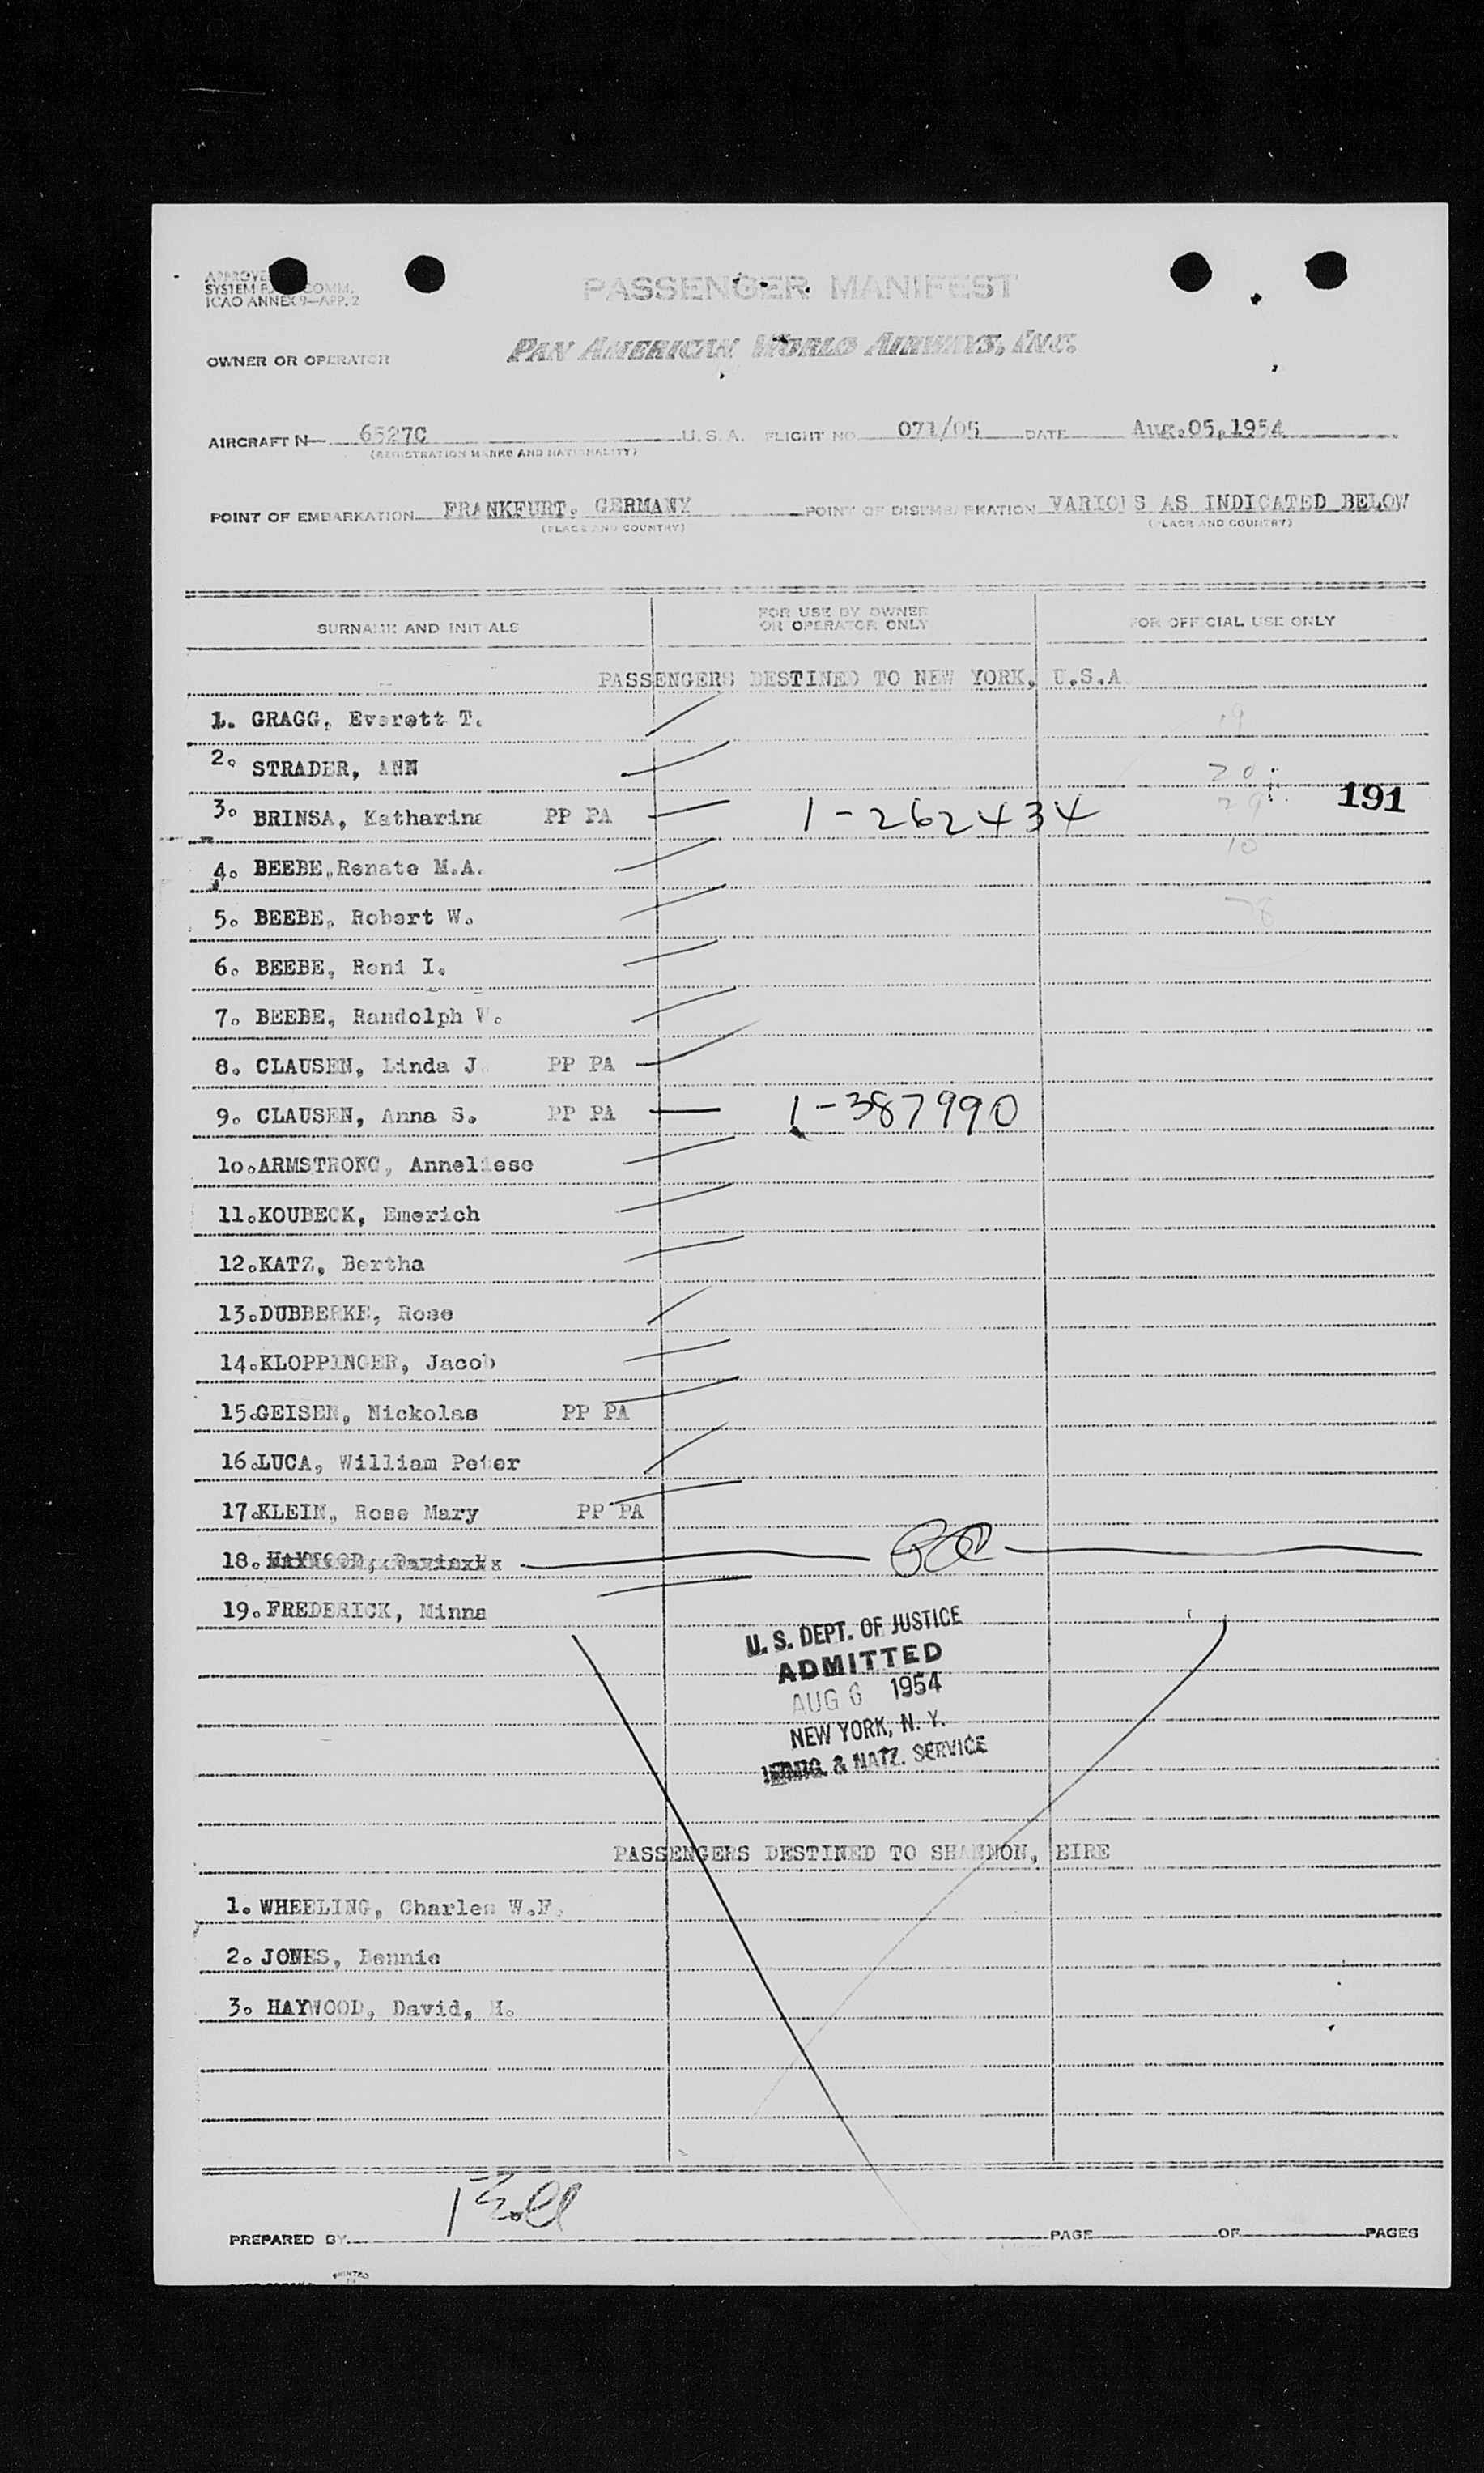 PASSENGER MANIFEST
SYSTEM
ICAO ANNEX 9—APP. 2
OWNER OR OPERATOR PAN AMERICAN WORLD AIRWAYS, INC.
AIRCRAFT N— 6527C U.S.A. FLIGHT NO. 071/05 DATE Aug.05,1954
(REGISTRATION MARKS AND NATIONALITY)
POINT OF EMBARKATION FRANKFURT. GERMANY POINT OF DISEMBARKATION VARIOUS AS INDICATED BELOW
(PLACE AND COUNTRY) (PLACE AND COUNTRY)
SURNAME AND INITIALS FOR USE BY OWNER OR OPERATOR ONLY FOR OFFICIAL USE ONLY
PASSENGERS DESTINED TO NEW YORK, U.S.A.
1. GRAGG, Everett T. 19
2. STRADER, ANN 20
191
3. BRINSA, Katharina PP PA 1-262434 29
4. BEEBE, Renate M.A. 10
5. BEEBE, Robert W. 78
6. BEEBE, Roni I.
7. BEEBE, Randolph W.
8. CLAUSEN, Linda J. PP PA
9. CLAUSEN, Anna S. PP PA 1-387990
10.ARMSTRONG, Anneliese
11.KOUBECK, Emerich
12.KATZ, Bertha
13.DUBBERKE, Rose
14.KLOPPINGER, Jacob
15.GEISEN, Nickolas PP PA
16.LUCA, William Peter
17.KLEIN, Rose Mary PP PA
18.
19.FREDERICK, Minna
U. S. DEPT. OF JUSTICE
ADMITTED
AUG 6 1954
NEW YORK, N. Y.
IMMIG. & NATZ. SERVICE
PASSENGERS DESTINED TO SHANNON, EIRE
1. WHEELING, Charles W.F.
2. JONES, Bennie
3. HAYWOOD, David, H.
PREPARED BY PAGE OF PAGES
PRINTED